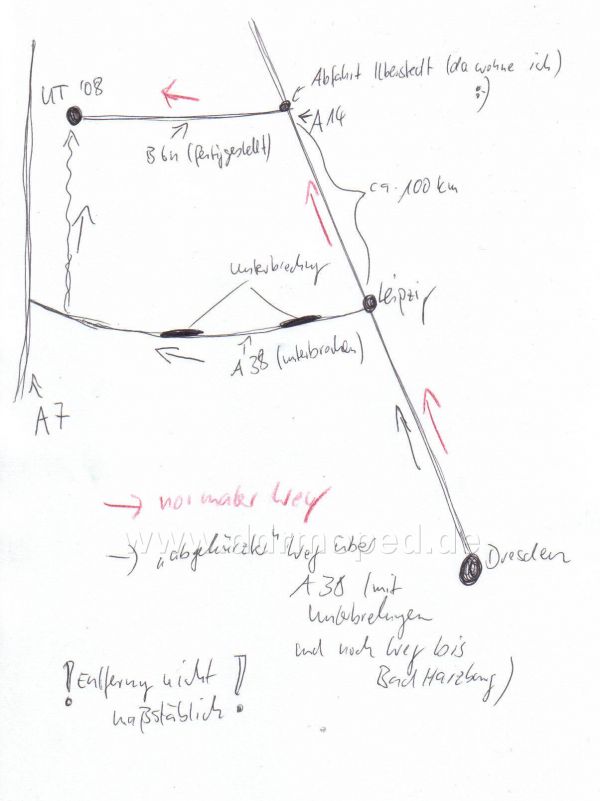 UT '08
Abfahrt Ilberstedt (da wohne ich)
:)
A14
B6n (fertiggestellt)
ca. 100 km
Unterbrechung
Leipzig
A38 (unterbrochen)
A7
→ normaler Weg
www.oldmoped.de
→ "abgekürzter" Weg über
A38 (mit
Unterbrechungen
und noch Weg bis
Bad Harzburg)
Dresden
! Entfernung nicht !
maßstäblich